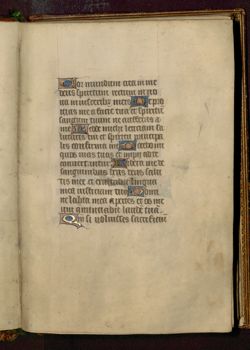 Cor mundum crea in me
deus et spiritum rectum in no
ua in uisceribus meis Ne pro
icias me a facie tua et spiritu
sanctum tuum ne auferas a
me Redde michi leticiam sa
lutaris tui et spiritu principa
li confirma me Docebo ini
quos uias tuas et impii ad te
conuertentur Libera me de
sanguinibus deus deus salu
tis mee et exultabit lingua
mea iusticiam tuam Domi
ne labia mea aperies et os me
um annunciabit laudem tuam
Qm si uoluisses sacrificiu